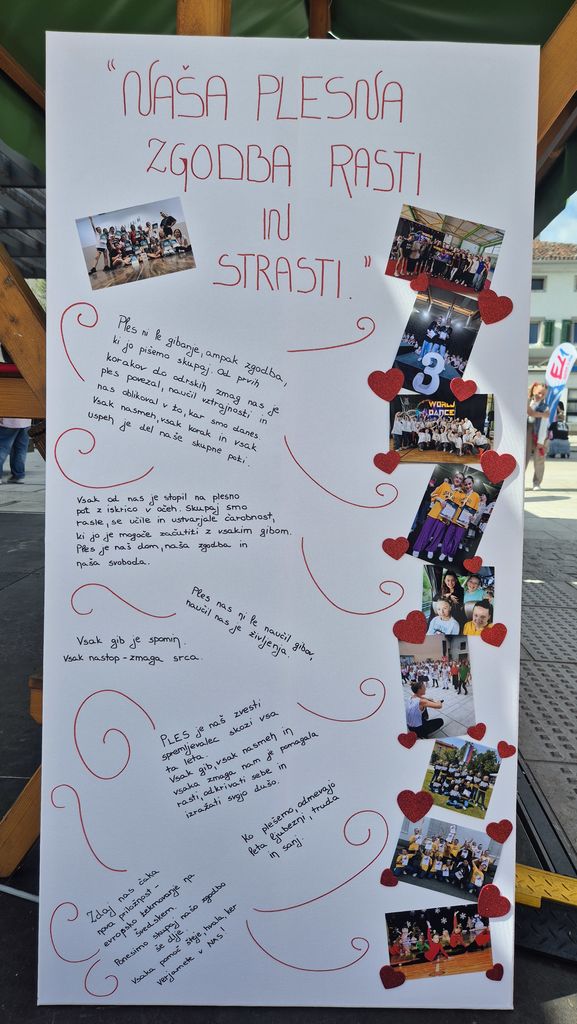 "NAŠA PLESNA
ZGODBA RASTI
IN
STRASTI."
Ples ni le gibanje, ampak zgodba,
ki jo pišemo skupaj. Od prvih
korakov do odrskih zmag nas je
ples povezal, naučil vztrajnosti in
nas oblikoval v to, kar smo danes
Vsak nasmeh, vsak korak in vsak
uspeh je del naše skupne poti.
Vsak od nas je stopil na plesno
pot z iskrico v očeh. Skupaj smo
rasle, se učile in ustvarjale čarobnost,
ki jo je mogoče začutiti z vsakim gibom.
Ples je naš dom, naša zgodba in
naša svoboda.
Ples nas ni le naučil gibov,
naučil nas je življenja.
Vsak gib je spomin.
Vsak nastop - zmaga srca.
PLES je naš zvesti
spremljevalec skozi vsa
ta leta.
Vsak gib, vsak nasmeh in
vsaka zmaga nam je pomagala
rasti, odkrivati sebe in
izražati svojo dušo.
Ko plešemo, odmevajo
leta ljubezni, truda
in sanj.
Zdaj nas čaka
nova priložnost -
evropsko tekmovanje na
Švedskem.
Ponesimo skupaj našo zgodbo
še dlje.
Vsaka pomoč šteje, hvala, ker
verjamete v NAS!
3
WORLD
DANCE
3